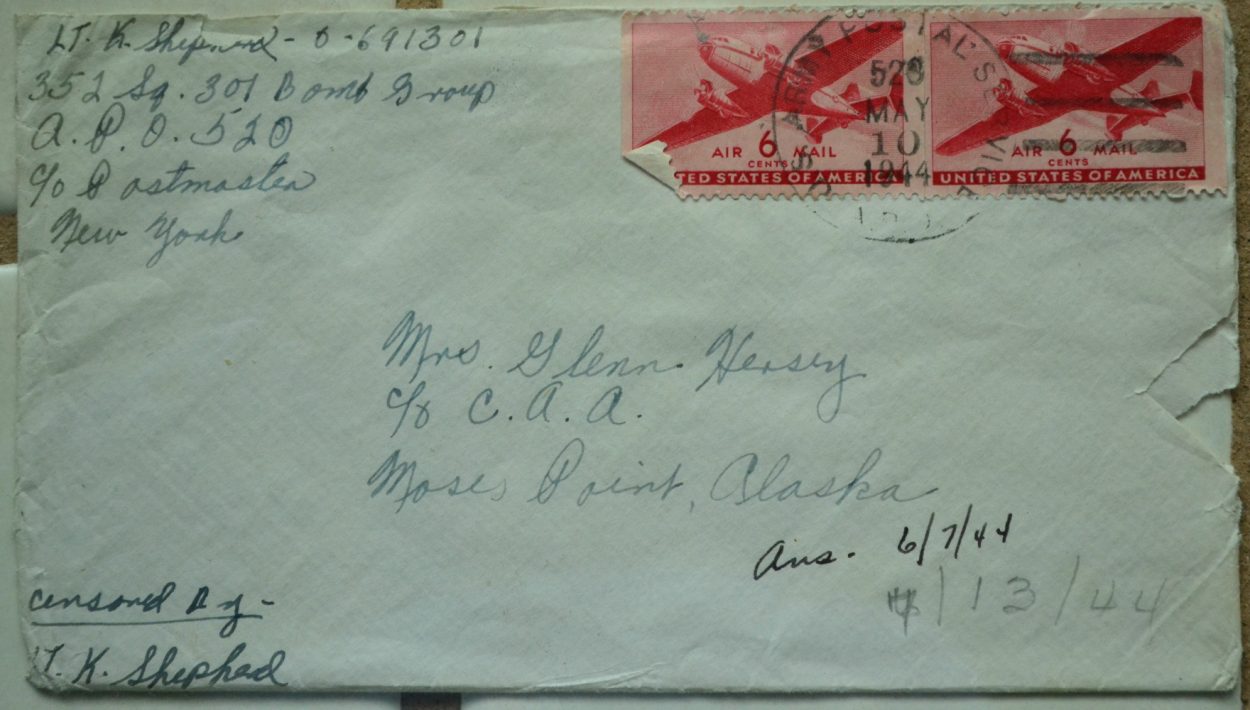 LT. K. Shepherd - O-691301
352 Sq. 301 Bomb Group
A. P. O. 520
c/o Postmaster
New York
AIR 6 MAIL
CENTS
TED STATES OF AMERICA
AIR 6 MAIL
CENTS
UNITED STATES OF AMERICA
U.S. ARMY POSTAL SERVICE
528
MAY
10
1944
Mrs. Glenn Hersey
c/o C. A. A.
Moses Point, Alaska
Ans. 6/7/44
/13/44
Censored By -
LT. K. Shephed